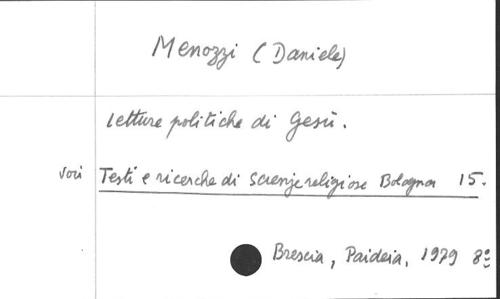 Menozzi (Daniele)
Letture politiche di Gesù.
voir Testi e ricerche di Scienze religiose Bologna 15.
Brescia, Paideia, 1979 8º